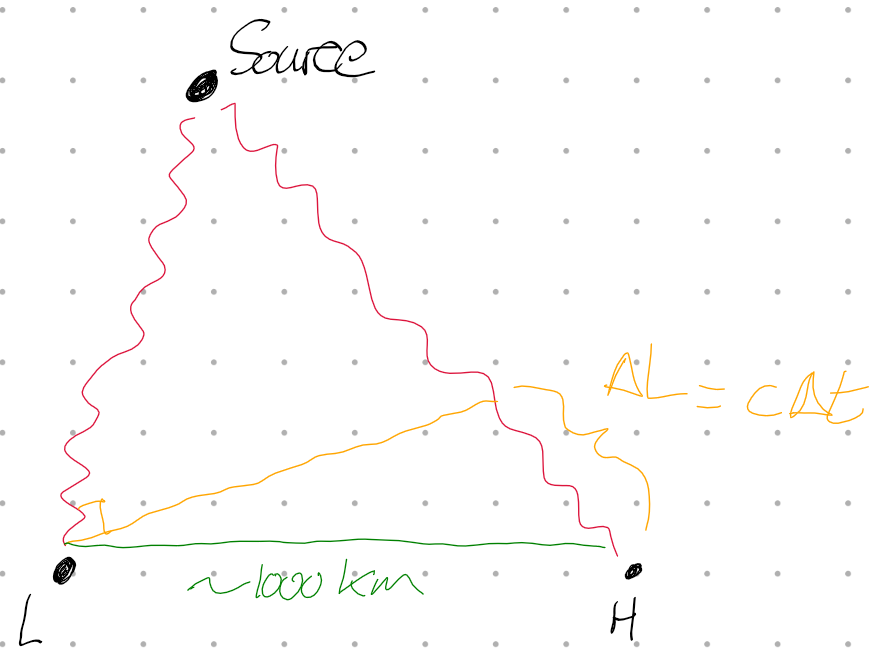 Source
ΔL = cΔt
~1000 km
L
H